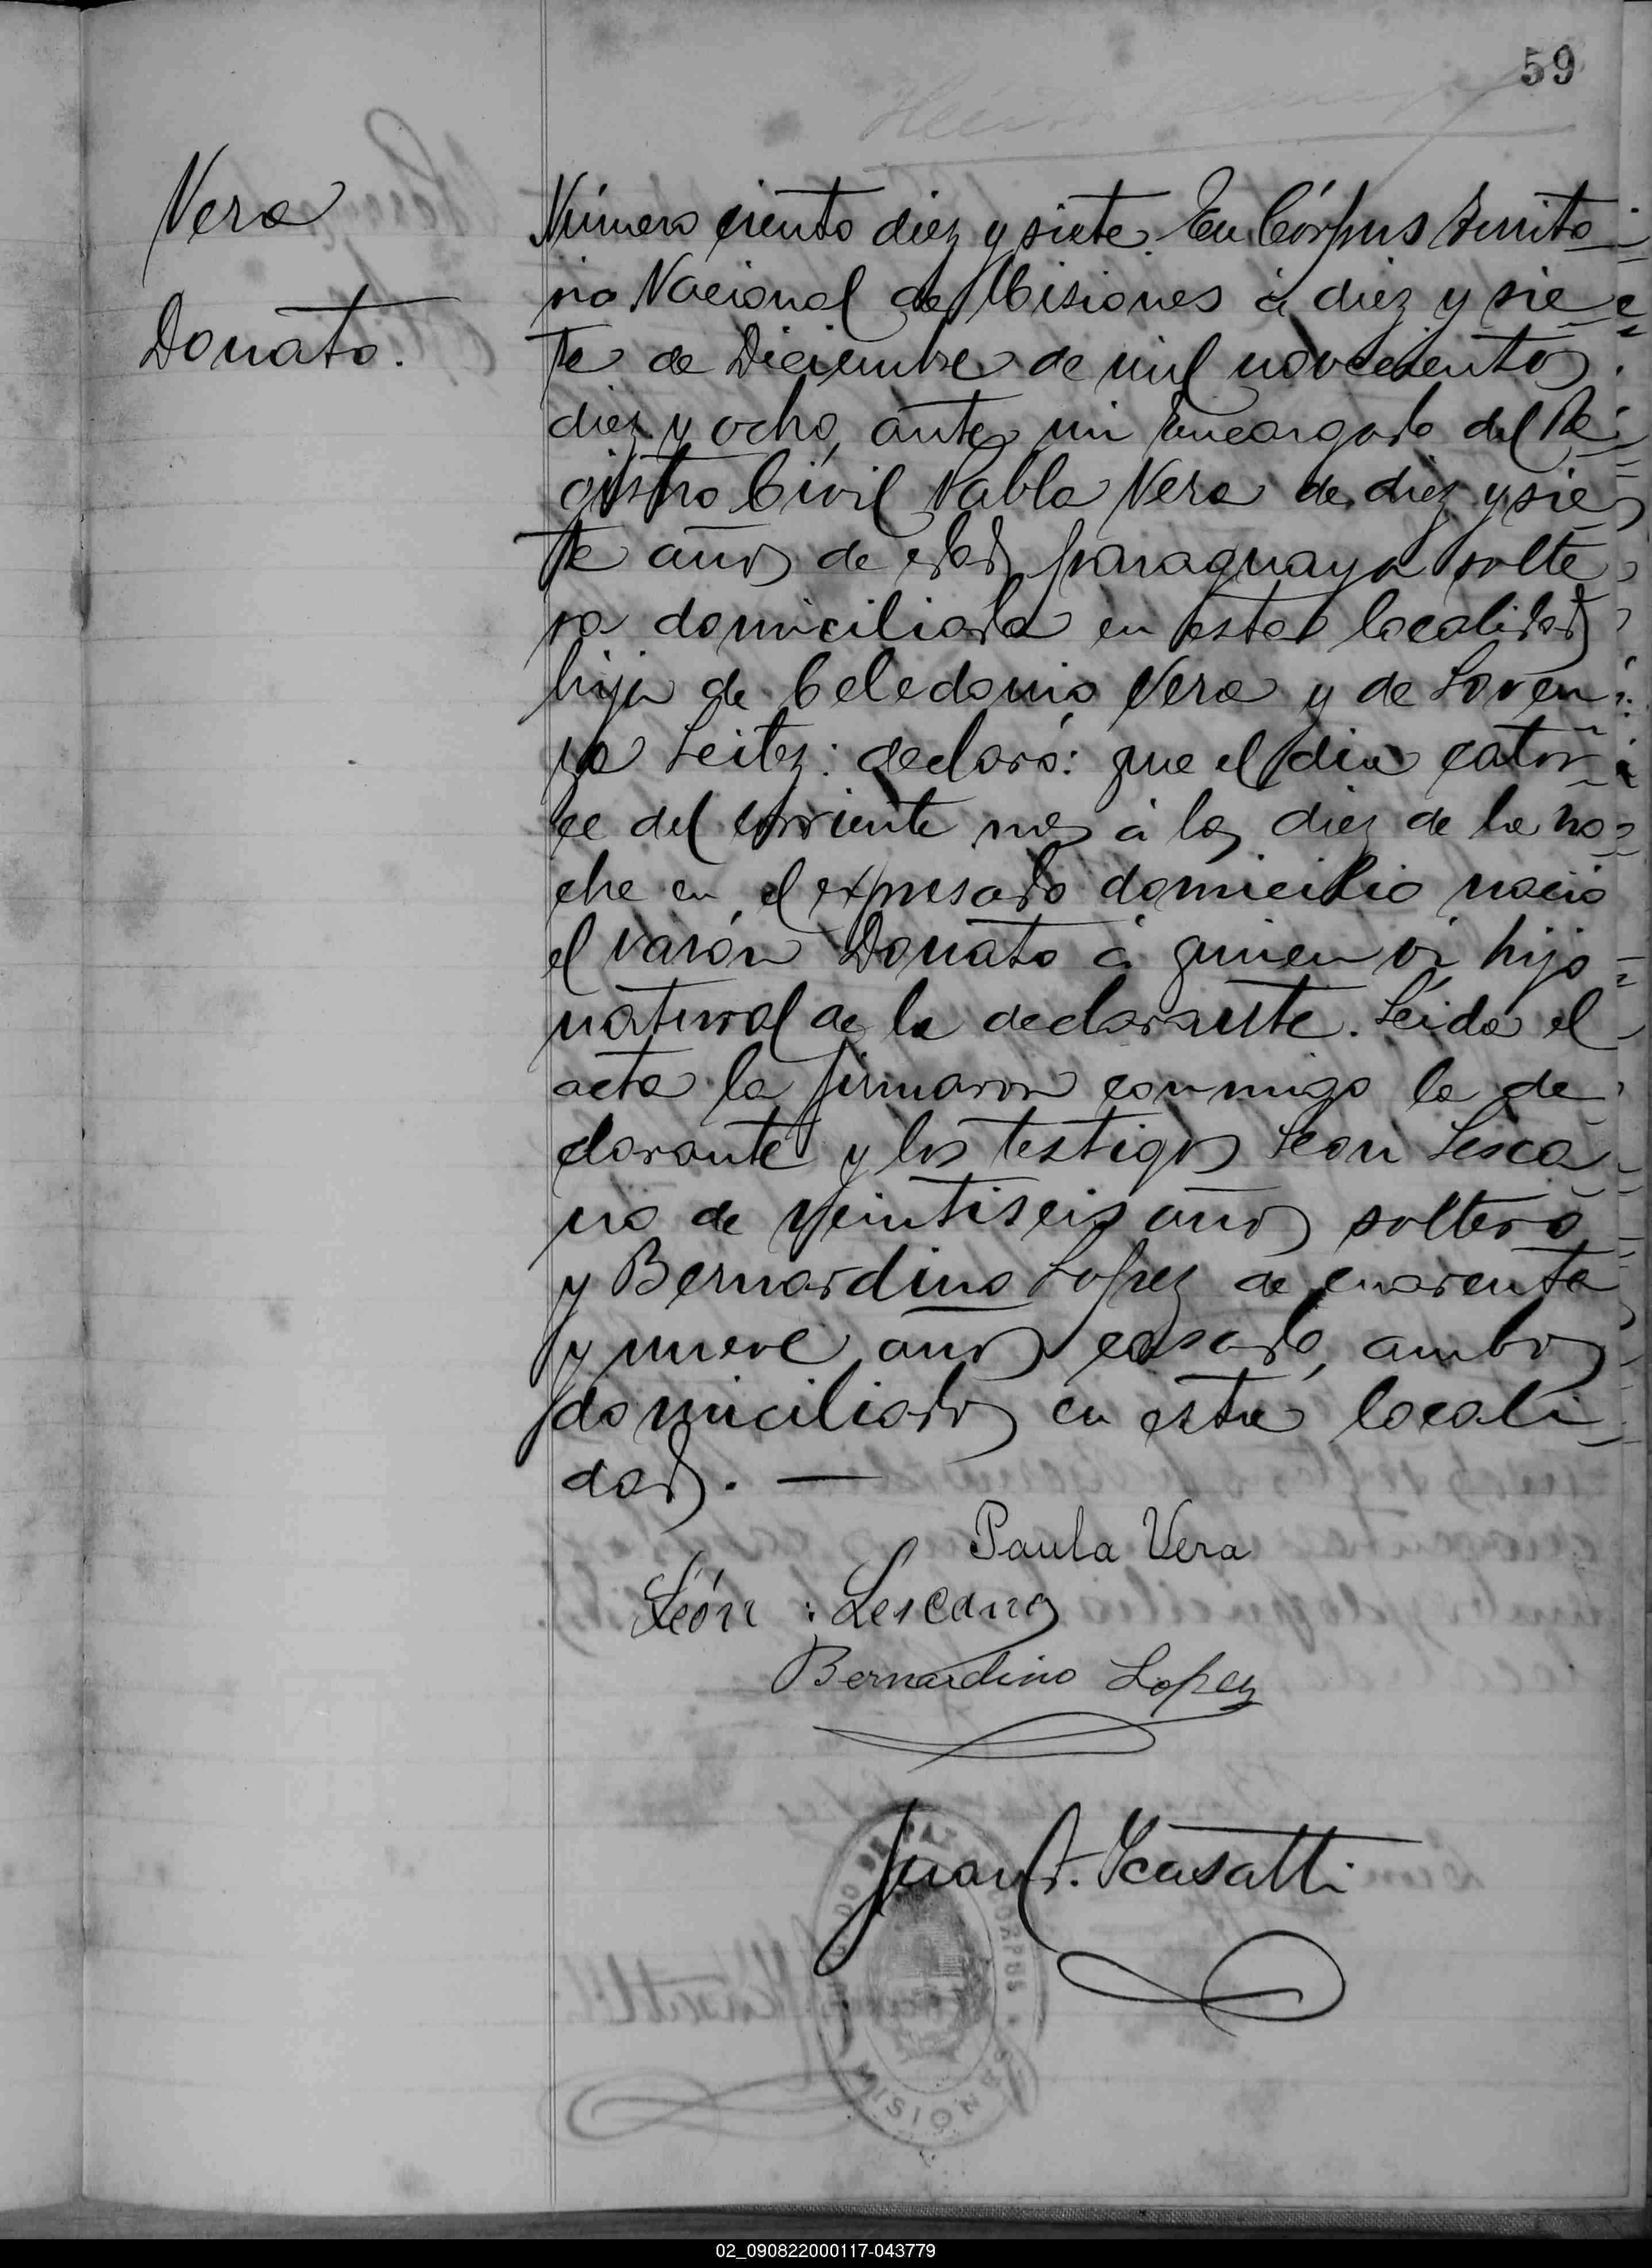 59
Vera
Donato.
Número ciento diez y siete. En Córpus Territo
rio Nacional de Misiones á diez y sie
te de Diciembre de mil novecientos
diez y ocho, ante mi Encargado del Re
gistro Civil Pabla Vera de diez y sie
te años de edad paraguaya solte
ra domiciliada en esta localidad
hija de Celedonio Vera y de Loren
za Leitez: declaró: que el dia cator
ce del corriente mes á las diez de la no
che en el expresado domicilio nació
el varón Donato á quien vi hijo
natural de la declarante. Leida el
acta la firmaron conmigo la de
clarante y los testigos Leon Lesca
no de veintiseis años soltero
y Bernardino Lopez de cuarenta
y nueve años casado, ambos
domiciliados en esta locali
dad. —
Paula Vera
León : Lescano
Bernardino Lopez
Juan
CORPUS
MISIONES
02_090822000117-043779